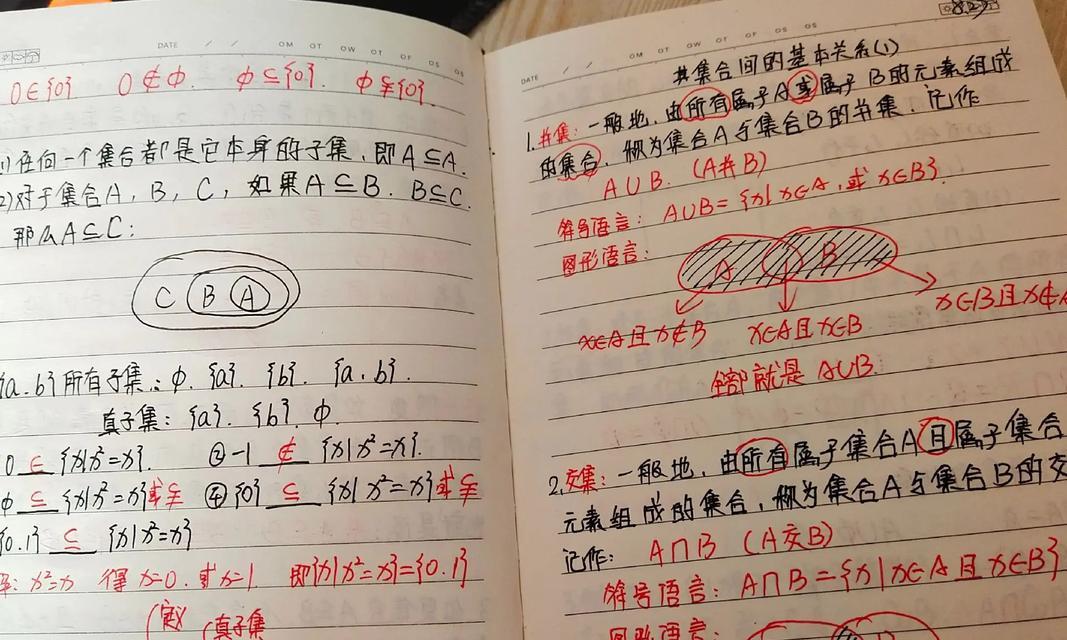 DATE / / OM OT OW OT OF OS OS
0∈{0} 0∉φ φ⊆{0} φ⫋{0}
1)任何一个集合都是它本身的子集,即A⊆A.
2)对于集合A,B,C,如果A⊆B.B⊆C.
那么A⊆C:
C B A
{a.b}所有子集:φ.{a}.{b}.{a.b}.
真子集:{a}.{b}.φ.
0 ∈ {x|x²=x}. ②-1 ∉ {x|x²=x}.
φ ⊆ {x|x²=x}或⫋ ④{0} ⊆ {x|x²=x}或⫋
{0.1} ⊆ {x|x²=x}
x²=x 得x=0.或x=1 即{x|x²=x}={0.1}
真子集
DATE / / OM OT OW OT OF OS OS
集合间的基本关系(1)
1.并集:一般地,由所有属于A或属于B的元素组成
的集合,称为集合A与集合B的并集,记作
A∪B.(A并B)
符号语言:A∪B={x|x∈A,或x∈B}.
图形语言:
A B
x∈A且x∉B x∈A且x∈B x∈B且x∉A
全部就是A∪B
2.交集:一般地,由所有属于集合A且属于集合
元素组成的集合,称为集合A与集合B的交
记作:A∩B(A交B)
符号语言:A∩B={x|x∈A且x∈B}
图形语言: